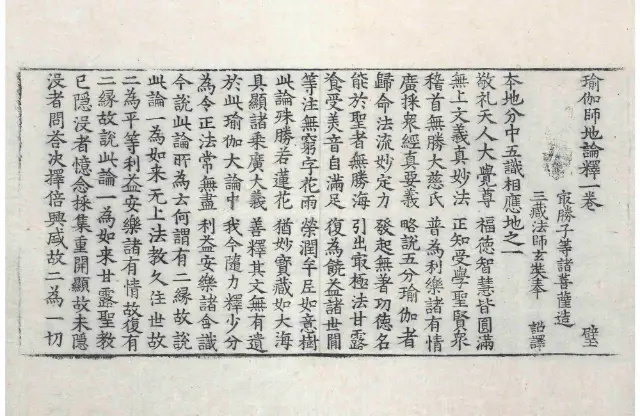 瑜伽師地論釋一卷 壁
㝡勝子等諸菩薩造
三藏法師玄奘奉 詔譯
本地分中五識相應地之一
敬礼天人大覺尊 福德智慧皆圓滿
無上文義真妙法 正知受學聖賢衆
稽首無勝大慈氏 普為利樂諸有情
廣採衆經真要義 略說五分瑜伽者
歸命法流妙定力 發起無著功德名
能於聖者無勝海 引出㝡極法甘露
飡受美音自滿足 復為饒益諸世間
等注無窮字花雨 榮潤牟尼如意樹
此論殊勝若蓮花 猶妙寶藏如大海
具顯諸乘廣大義 善釋其文無有遺
於此瑜伽大論中 我今隨力釋少分
為令正法常無盡 利益安樂諸含識
今說此論所為云何謂有二緣故說
此論一為如來无上法教久住世故
二為平等利益安樂諸有情故復有
二緣故說此論一為如來甘露聖教
已隱沒者憶念採集重開顯故未隱
沒者問荅決擇倍興盛故二為一切